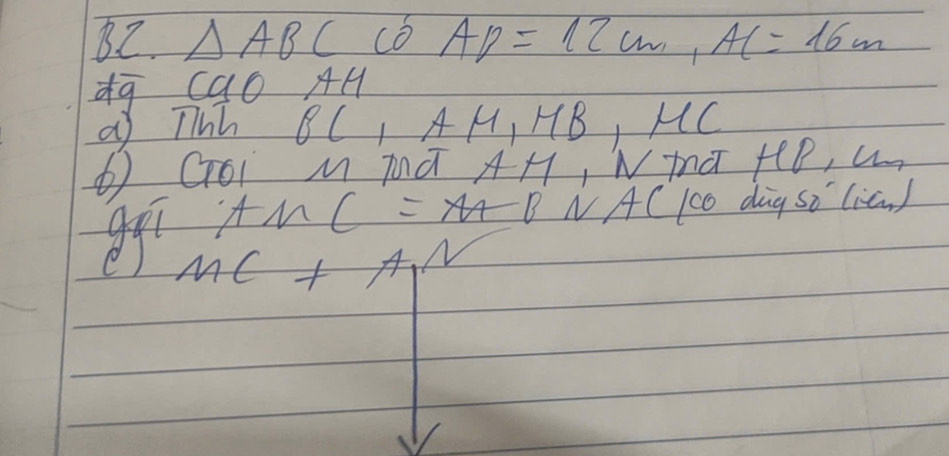 B2. Δ ABC có AB = 12 cm, AC = 16 cm
đg cao AH
a) Tính BC, AH, HB, HC
b) Gọi M tnđ AH, N tnđ HB, cm
góc AMC = BNA (ko dùng số liệu)
c) MC + AN